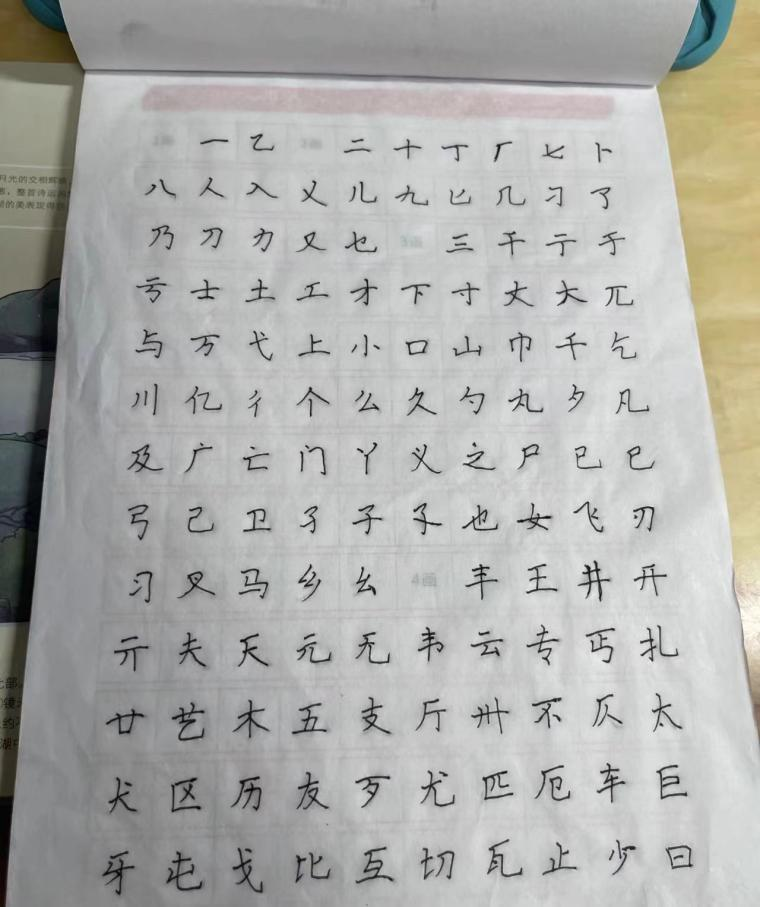 一乙二十丁厂七卜
八人入乂儿九匕几刁了
乃刀力又乜三干亍于
亏士土工才下寸丈大兀
与万弋上小口山巾千乞
川亿彳个么久勺丸夕凡
及广亡门丫义之尸已巳
弓己卫孑子孓也女飞刃
习叉马乡幺4画丰王井开
亓夫天元无韦云专丐扎
廿艺木五支厅卅不仄太
犬区历友歹尤匹厄车巨
牙屯戈比互切瓦止少曰